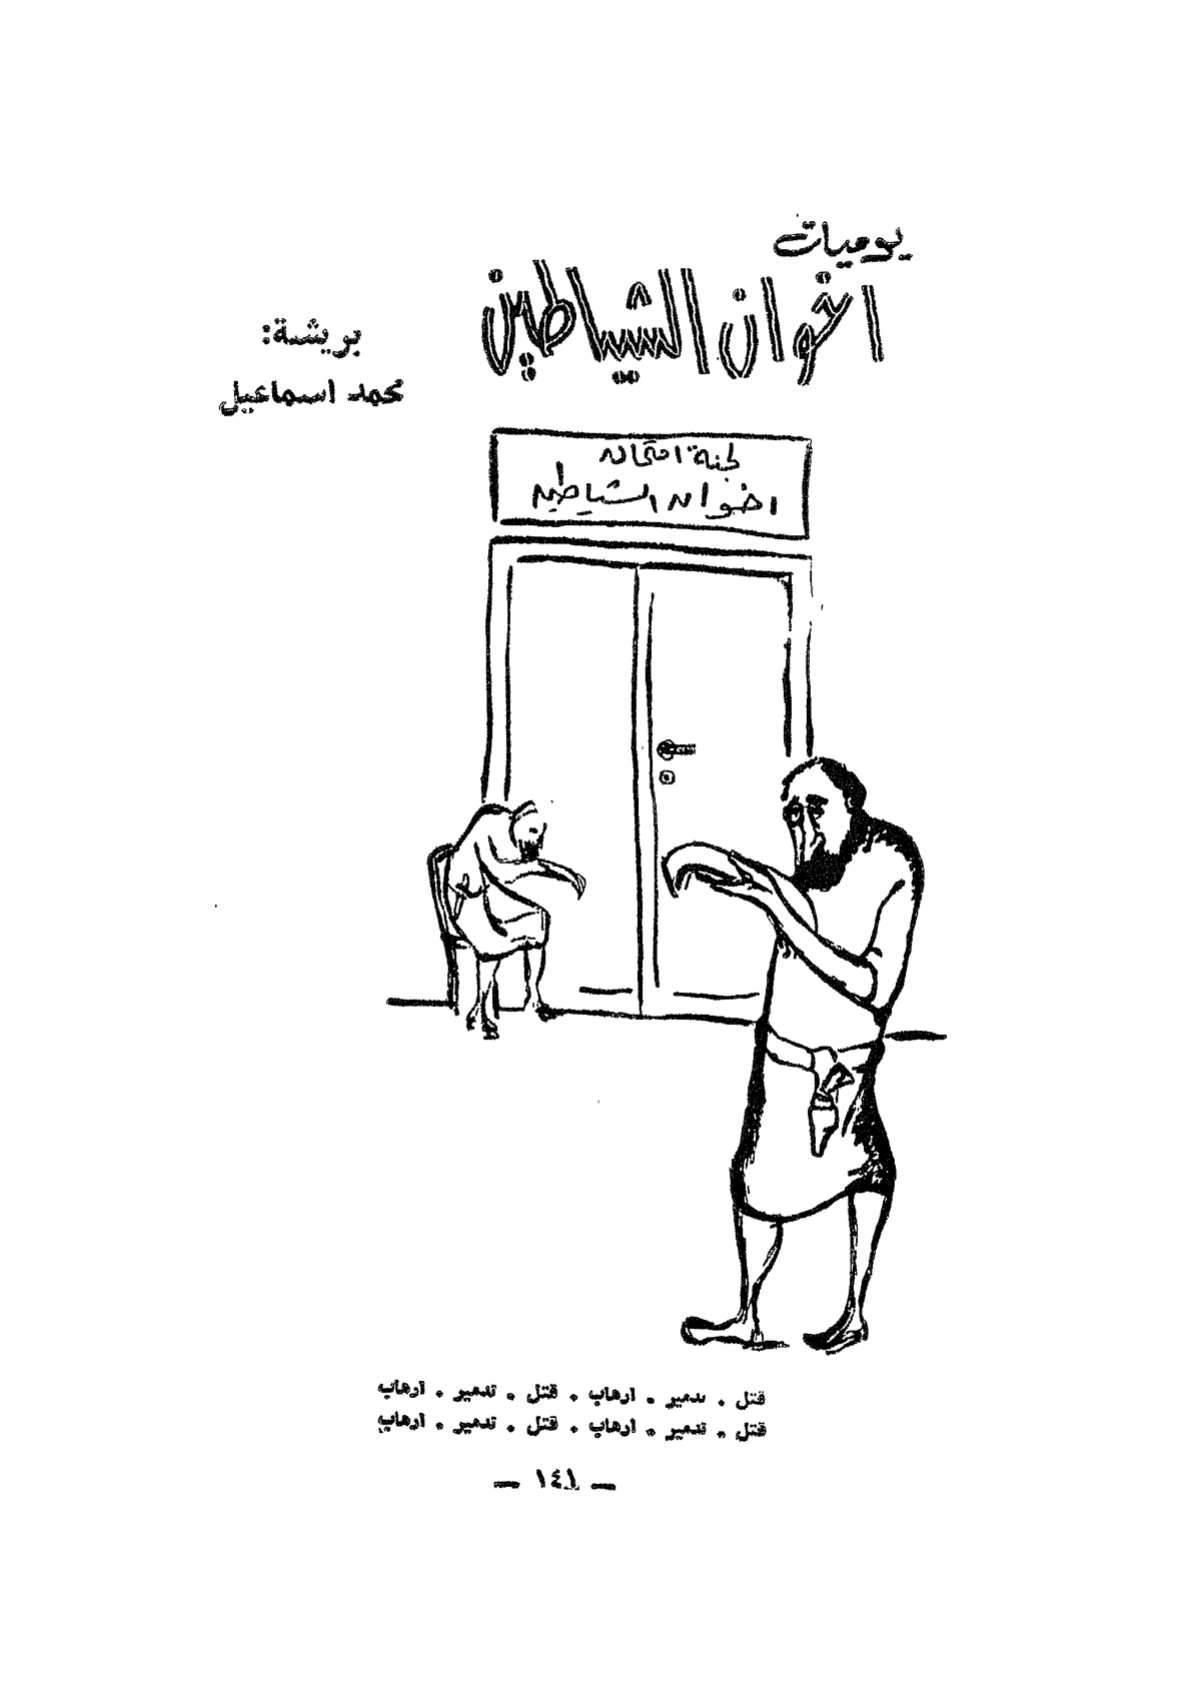 يوميات
اخوان الشياطين
بريشة:
محمد اسماعيل
لجنة امتحان
اخوان الشياطين
قتل . تدمير . ارهاب . قتل . تدمير . ارهاب
قتل . تدمير . ارهاب . قتل . تدمير . ارهاب
— ١٤١ —